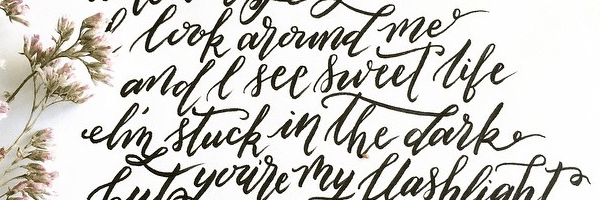 I look around me
and I see sweet life
I'm stuck in the dark
but you're my flashlight